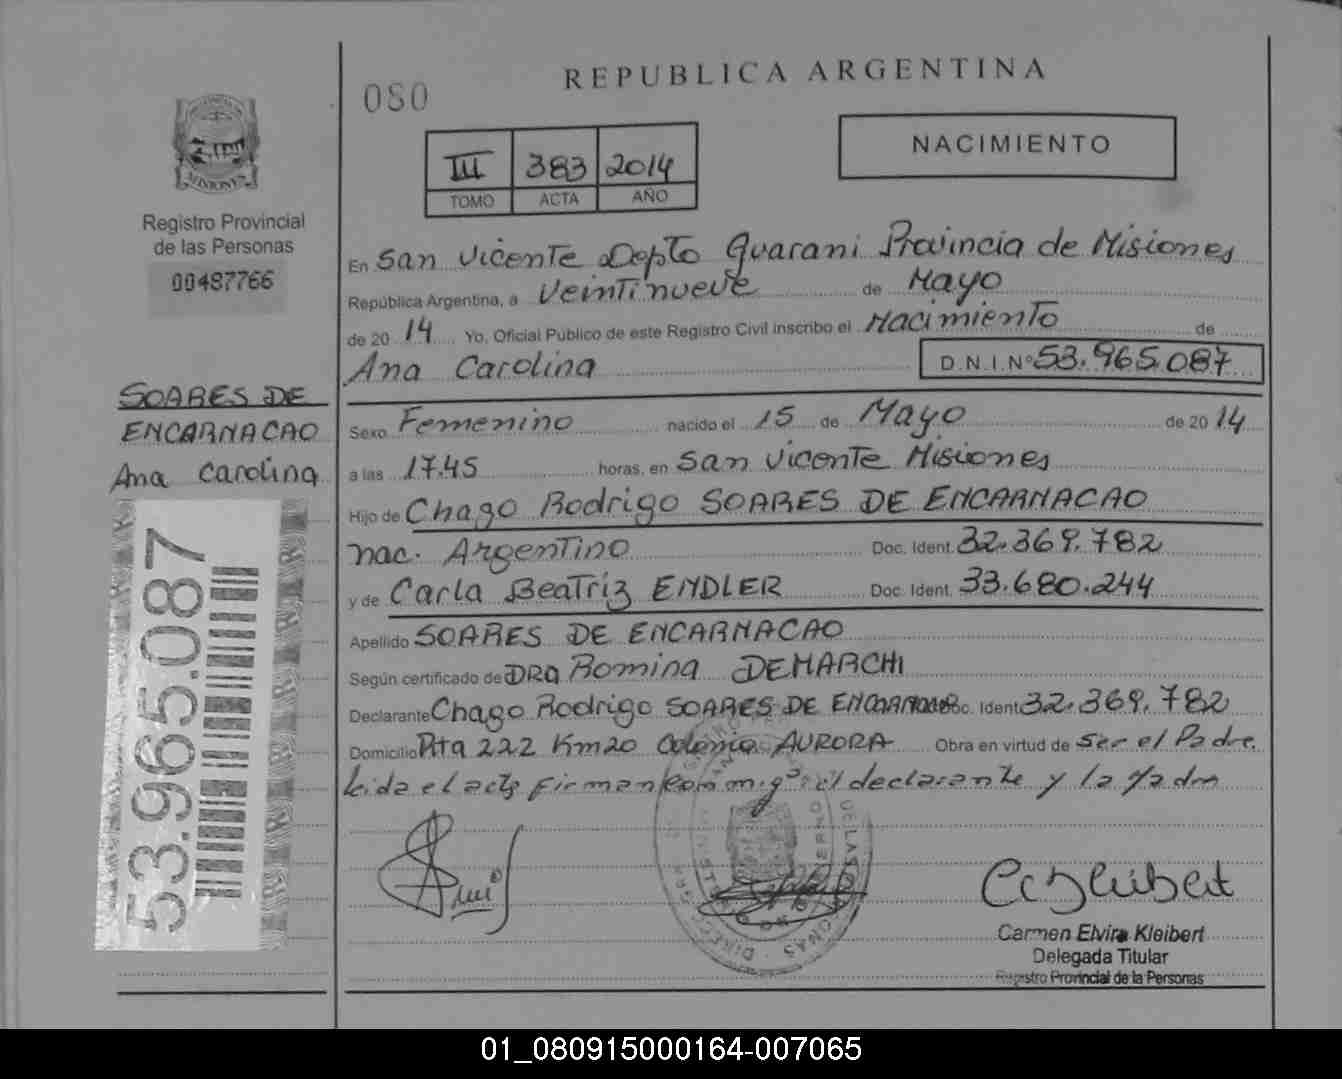 REPUBLICA ARGENTINA
080
NACIMIENTO
III 383 2014
TOMO ACTA AÑO
MISIONES
Registro Provincial
de las Personas
00487766
En San Vicente Depto Guarani Provincia de Misiones
República Argentina, a Veintinueve de Mayo
de 20 14 Yo, Oficial Público de este Registro Civil inscribo el Nacimiento de
Ana Carolina D.N.I.Nº 53.965.087
SOARES DE
ENCARNACAO
Ana Carolina
Sexo Femenino nacido el 15 de Mayo de 20 14
a las 17.45 horas, en San Vicente Misiones
Hijo de Chago Rodrigo SOARES DE ENCARNACAO
nac. Argentino Doc. Ident. 32.369.782
y de Carla Beatriz ENDLER Doc. Ident. 33.680.244
Apellido SOARES DE ENCARNACAO
Según certificado de DRA Romina DEMARCHI
Declarante Chago Rodrigo SOARES DE ENCARNACAO Doc. Ident 32.369.782
Domicilio Pta 222 Km20 Colonia AURORA Obra en virtud de Ser el Padre
Leida el acta firman con migo el declarante y la Madre
53.965.087
Carmen Elvira Kleibert
Delegada Titular
Registro Provincial de la Personas
01_080915000164-007065